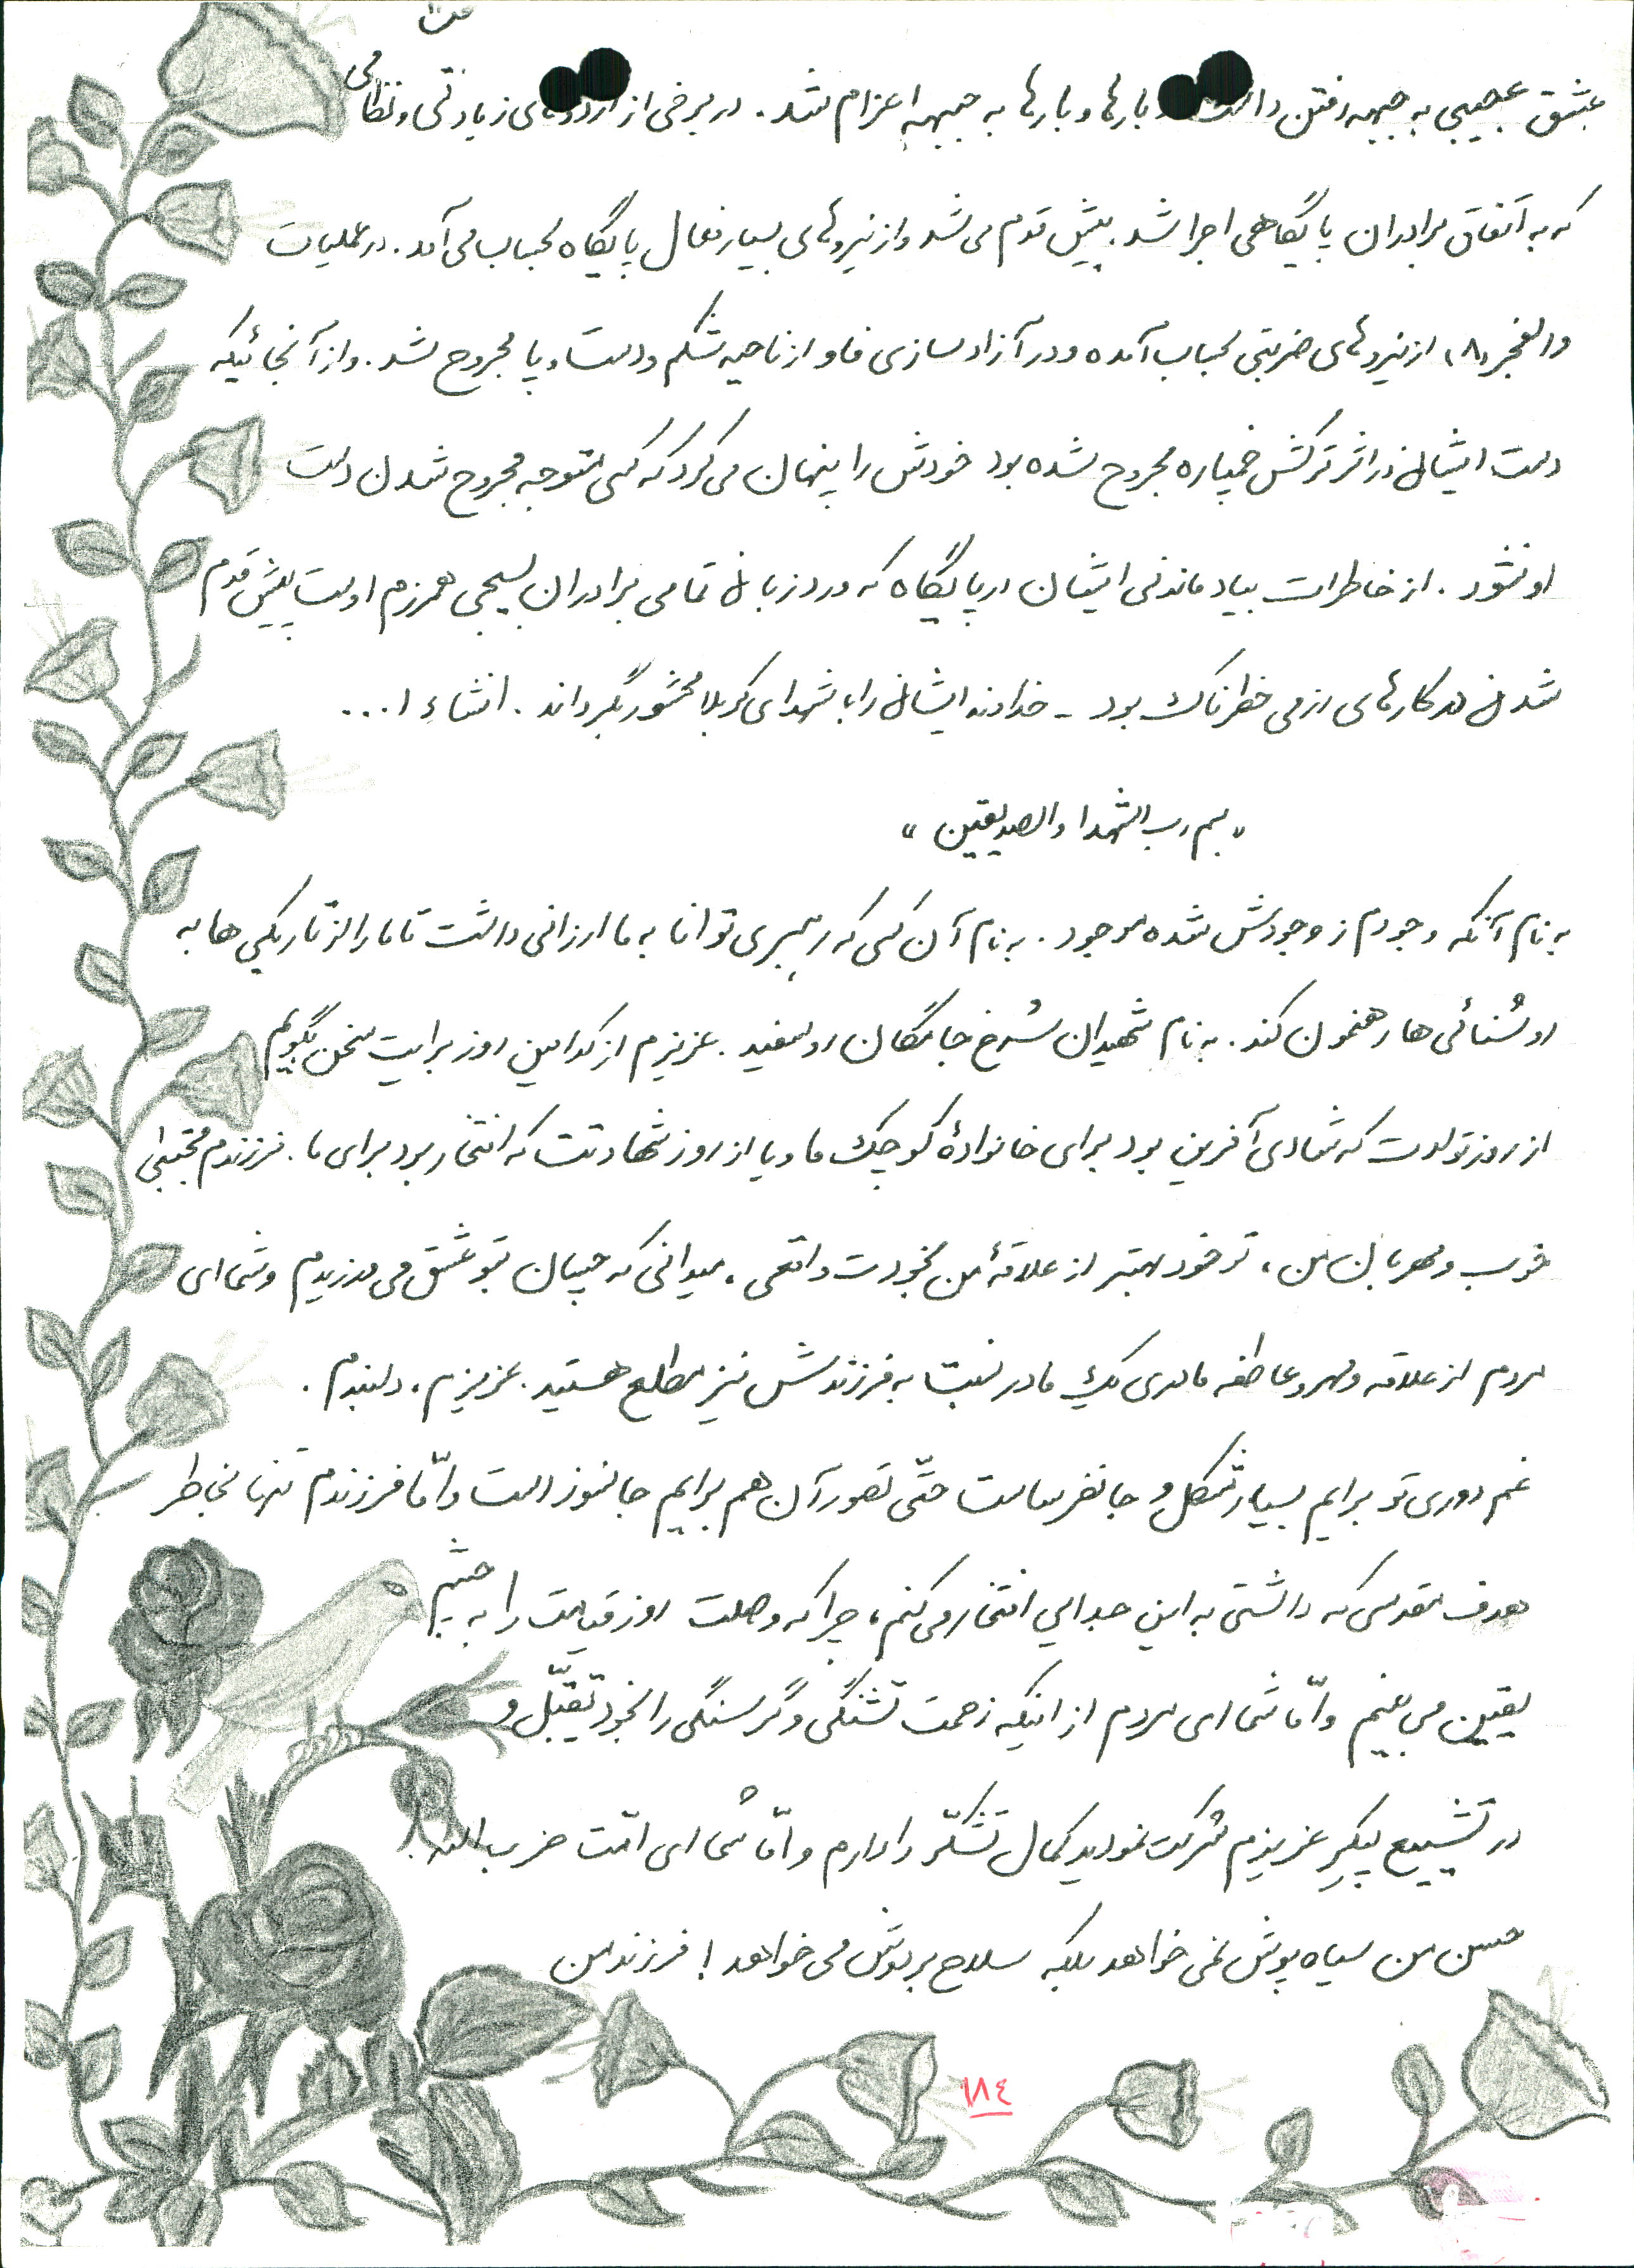 عشق عجیبی به جبهه رفتن داشت و بارها و بارها به جبهه اعزام شد. در برخی از اردوهای زیادتی و نظامی
که به اتفاق برادران پایگاهی اجرا شد. پیش قدم می شد و از نیروهای بسیار فعال پایگاه بحساب می آمد. در عملیات
والفجر «۸» از نیروهای ضربتی بحساب آمده و در آزادسازی فاو از ناحیه شکم و دست و پا مجروح شد. و از آنجائیکه
دست ایشان در اثر ترکش خمپاره مجروح شده بود خودش را پنهان می کرد که کسی متوجه مجروح شدن دست
او نشود. از خاطرات بیاد ماندنی ایشان در پایگاه که ورد زبان تمامی برادران بسیجی همرزم اوست پیش قدم
شدن در کارهای رزمی خطرناک بود - خداوند ایشان را با شهدای کربلا محشور بگرداند. انشاء ا...
«بسم رب الشهدا و الصدیقین»
به نام آنکه وجودم ز وجودش شده موجود. به نام آن کسی که رهبری توانا به ما ارزانی داشت تا ما را از تاریکی ها به
روشنائی ها رهنمون کند. به نام شهیدان سُرخ جامگان روسفید. عزیزم از کدامین روز برایت سخن بگویم
از روز تولدت که شادی آفرین بود برای خانوادهٔ کوچک ما و یا از روز شهادتت که افتخار بود برای ما. فرزندم مجتبی
خوب و مهربان من، تو خود بهتر از علاقهٔ من بخودت واقعی، میدانی که چسان بتو عشق می ورزیدم و شما ای
مردم از علاقه و مهر و عاطفه مادری یک مادر نسبت به فرزندش نیز مطلع هستید. عزیزم، دلبندم.
غم دوری تو برایم بسیار مشکل و جانفرساست حتّی تصور آن هم برایم جانسوز است و امّا فرزندم تنها بخاطر
هدف مقدسی که داشتی به این جدایی افتخار می کنم، چرا که وصلت روز قیامت را به چشم
یقین می بینم و امّا شما ای مردم از اینکه زحمت تشنگی و گرسنگی را بخود تقبّل و
در تشییع پیکرِ عزیزم شرکت نمودید کمال تشکّر را دارم و امّا شما ای امّت حزب الله!
حسن من سیاه پوش نمی خواهد بلکه سلاح بر دوش می خواهد! فرزند من
۱۸٤